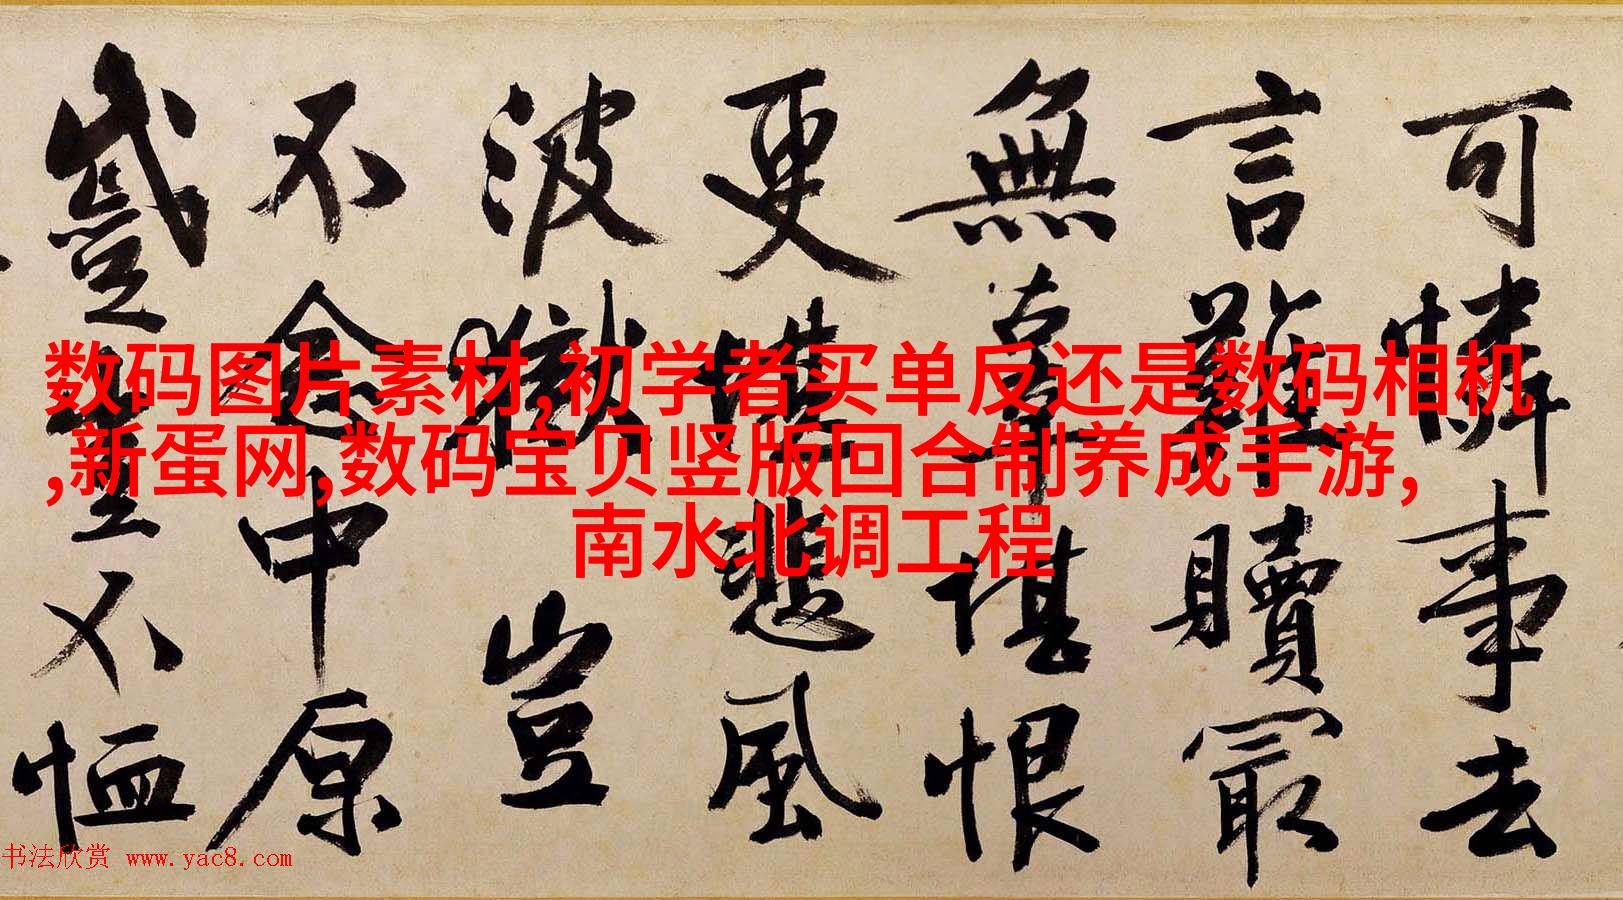 可憐事去
言難贖冣
無辜堪恨
更堪悲風
波獄豈
不念中原
豈不恤
数码图片素材,初学者买单反还是数码相机
,新蛋网,数码宝贝竖版回合制养成手游,
南水北调工程
书法欣赏 www.yac8.com